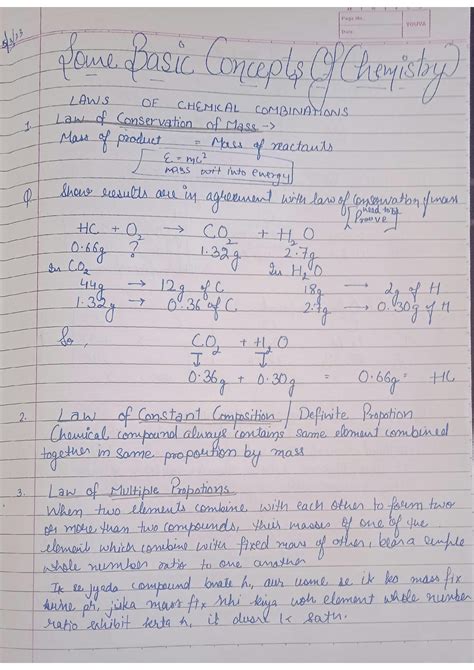 Page No.
Date
YOUVA
Some Basic Concepts Of Chemistry
LAWS OF CHEMICAL COMBINATIONS
1. Law of Conservation of Mass →
Mass of product = Mass of reactants
E = mc²
mass into energy
Q Show results are in agreement with law of conservation of mass
[need to be Proove]
HC + O₂ → CO₂ + H₂O
0.66g ? 1.32g 2.7g
In CO₂ In H₂O
44g → 12g of C 18g → 2g of H
1.32g → 0.36 of C 2.7g → 0.30g of H
So, CO₂ + H₂O
↓ ↓
0.36g + 0.30g = 0.66g = HC
2. Law of Constant Composition / Definite Propotion
Chemical compound always contains same element combined
together in same proportion by mass
3. Law of Multiple Propotions
When two elements combine with each other to form two
or more than two compounds, their masses of one of the
element which combine with fixed mass of other, bear a simple
whole number ratio to one another
Ik se jyada compound bnate h, aur usme se ik ko mass fix
krne pr, jiska mass fix nhi kiya woh element whole number
ratio exhibit krta h, ik dusre k sath.